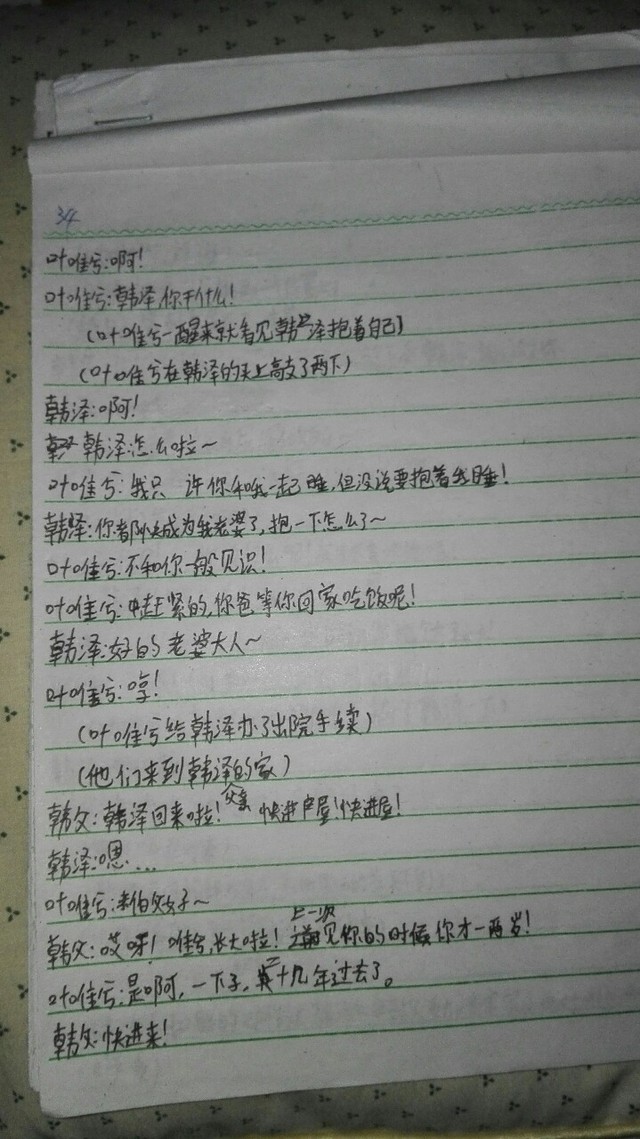 34
叶唯兮:啊!
叶唯兮:韩泽,你干什么!
(叶唯兮一醒来就看见韩泽抱着自己)
(叶唯兮在韩泽的头上敲了两下)
韩泽:啊!
韩泽:怎么啦~
叶唯兮:我只 许你和我一起睡,但没说要抱着我睡!
韩泽:你都快成为我老婆了,抱一下怎么了~
叶唯兮:不和你一般见识!
叶唯兮:赶紧的,你爸等你回家吃饭呢!
韩泽:好的老婆大人~
叶唯兮:哼!
(叶唯兮给韩泽办了出院手续)
(他们来到韩泽的家)
韩父:韩泽回来啦! 快进屋!快进屋!
韩泽:嗯...
叶唯兮:伯父好~
韩父:哎呀!唯兮,长大啦!上一次见你的时候你才一两岁!
叶唯兮:是啊,一下子,二十几年过去了。
韩父:快进来!